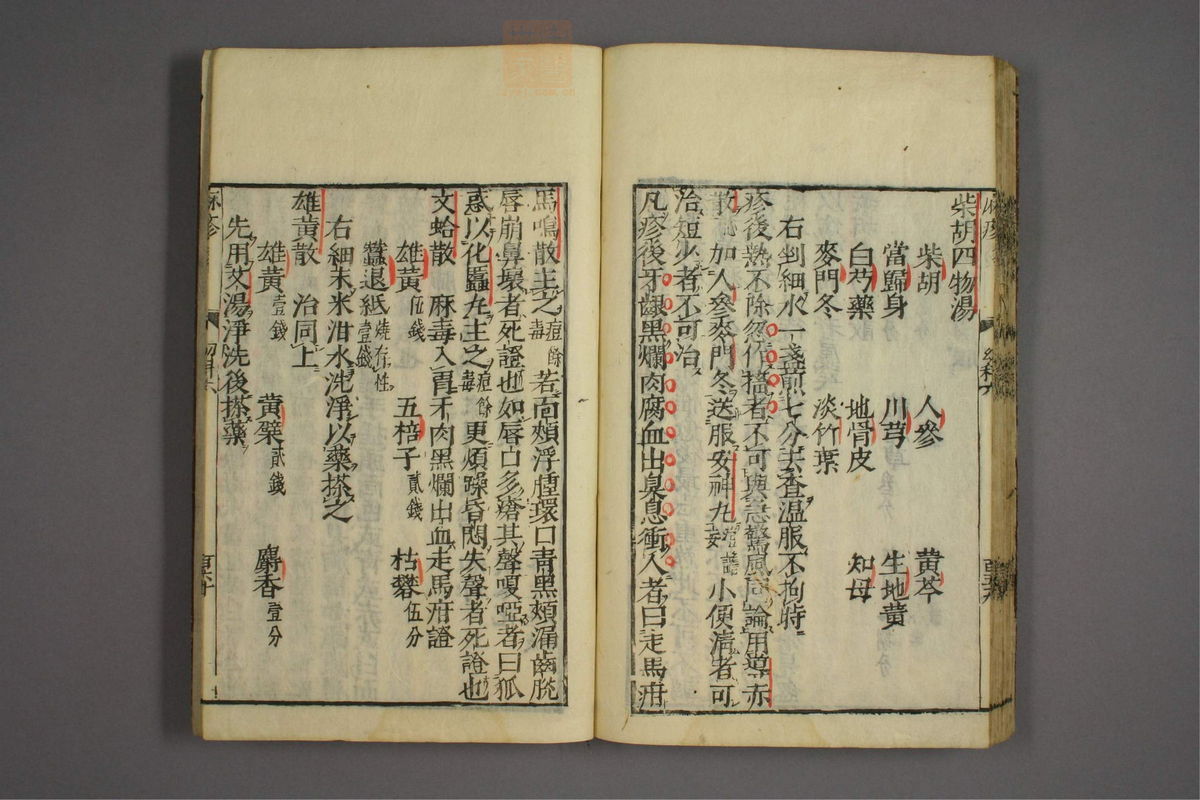 柴胡四物湯
柴胡 人參 黄芩
當歸身 川芎 生地黄
白芍藥 地骨皮 知母
麥門冬 淡竹葉
右剉細水一盞煎七分去查温服不拘時
疹後熱不除忽作搐者不可與急驚風同論用導赤
散加人參麥門冬送服安神丸 小便清者可
治短少者不可治
凡疹後牙齦黑爛肉腐血出臭息衝人者曰走馬疳
馬鳴散主之痘餘毒若面頰浮腫環口青黑頰漏齒脱
唇崩鼻壞者死證也如唇口多瘡其聲嗄啞者曰狐
惑以化䘌丸主之痘餘毒更煩躁昏悶失聲者死證也
文蛤散 麻毒入胃牙肉黑爛出血走馬疳證
雄黄伍錢 五棓子貳錢 枯礬伍分
蠶退紙燒存性壹錢
右細末米泔水洗淨以藥搽之
雄黄散 治同上
雄黄壹錢 黄蘗貳錢 麝香壹分
先用艾湯淨洗後搽藥
麻疹